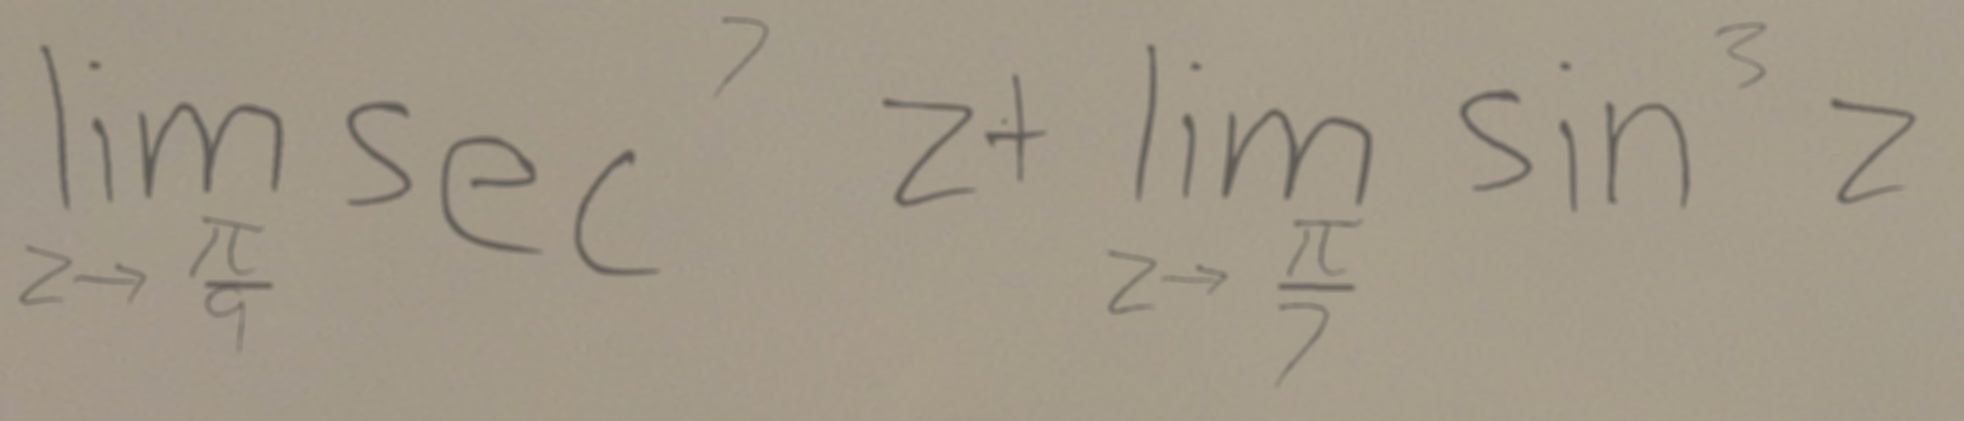 \lim_{z \to \frac{\pi}{9}} \sec^7 z + \lim_{z \to \frac{\pi}{7}} \sin^3 z